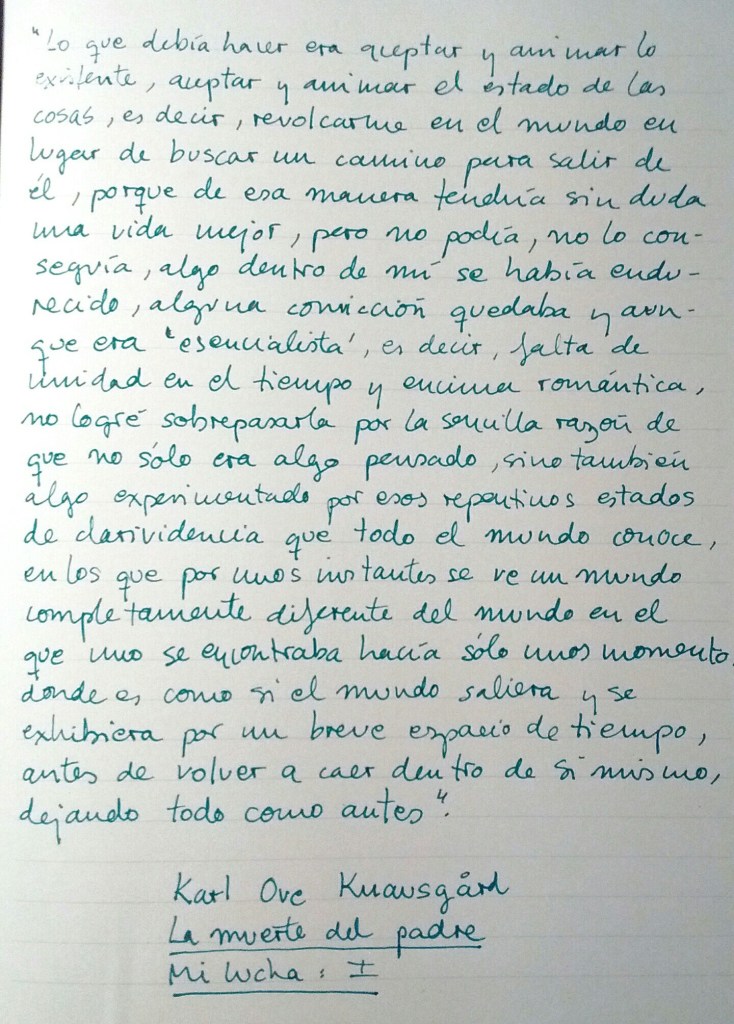 "Lo que debía hacer era aceptar y animar lo
existente, aceptar y animar el estado de las
cosas, es decir, revolcarme en el mundo en
lugar de buscar un camino para salir de
él, porque de esa manera tendría sin duda
una vida mejor, pero no podía, no lo con-
seguía, algo dentro de mí se había endu-
recido, alguna convicción quedaba y aun-
que era 'esencialista', es decir, falta de
unidad en el tiempo y encima romántica,
no logré sobrepasarla por la sencilla razón de
que no sólo era algo pensado, sino también
algo experimentado por esos repentinos estados
de clarividencia que todo el mundo conoce,
en los que por unos instantes se ve un mundo
completamente diferente del mundo en el
que uno se encontraba hacía sólo unos momentos,
donde es como si el mundo saliera y se
exhibiera por un breve espacio de tiempo,
antes de volver a caer dentro de sí mismo,
dejando todo como antes".
Karl Ove Knausgård
La muerte del padre
Mi lucha : I